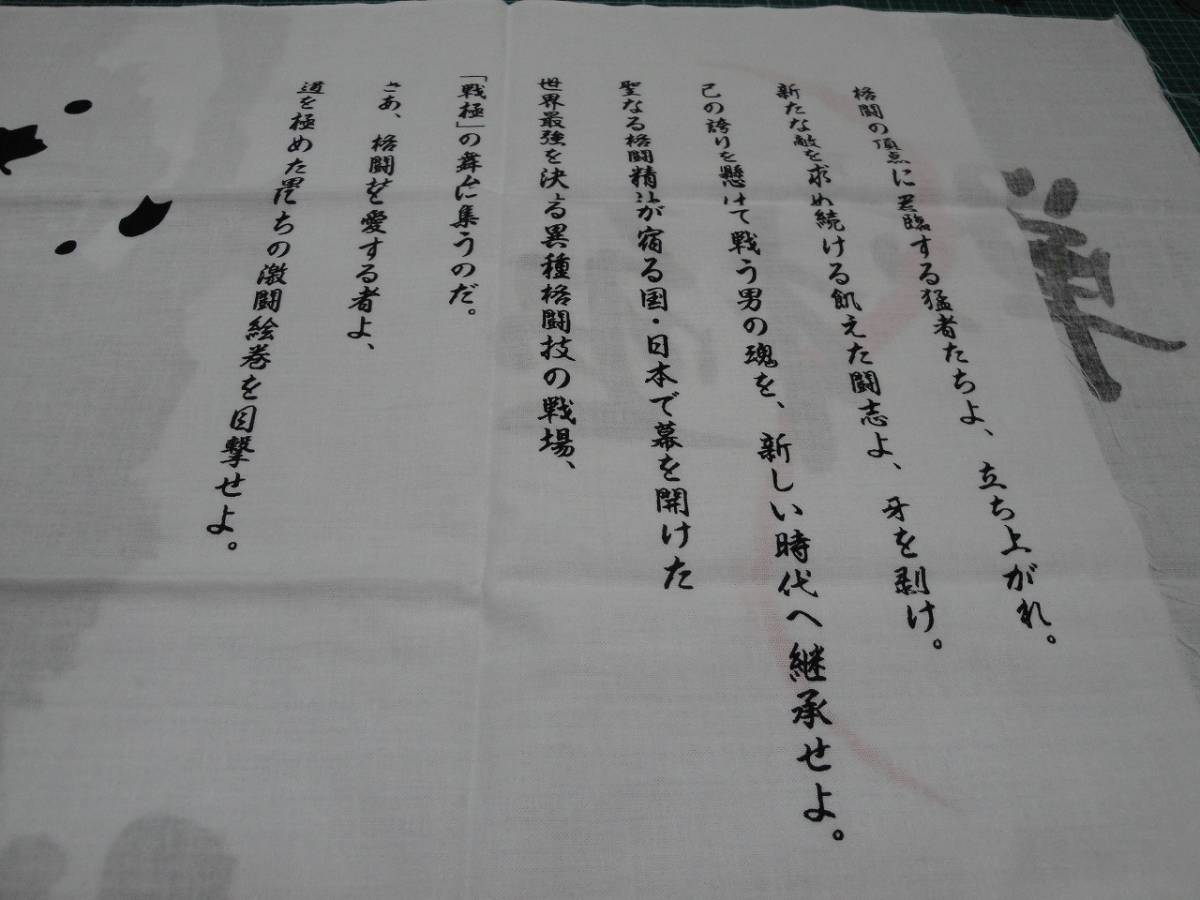 格闘の頂点に君臨する猛者たちよ、立ち上がれ。
新たな敵を求め続ける飢えた闘志よ、牙を剥け。
己の誇りを懸けて戦う男の魂を、新しい時代へ継承せよ。
聖なる格闘精神が宿る国・日本で幕を開けた
世界最強を決する異種格闘技の戦場、
「戦極」の舞台に集うのだ。
さあ、格闘を愛する者よ、
道を極めた男たちの激闘絵巻を目撃せよ。